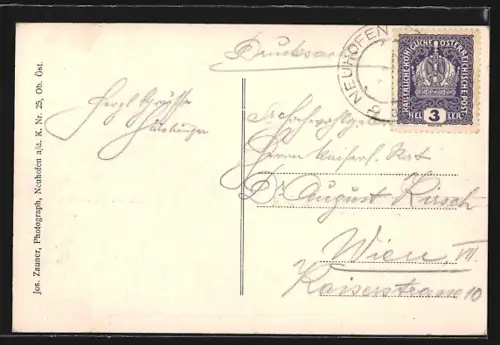 Drucksache
NEUHOFEN
KAISERLICHE KÖNIGLICHE ÖSTERREICHISCHE POST
HELLER
3
Herzl. Grüße
Hochwohlgeboren
Herrn Kaiserl. Rat
Dr. August Kirsch
Wien, VII.
Kaiserstrasse 10
Jos. Zauner, Photograph, Neuhofen a/d. K. Nr. 25, Ob. Öst.